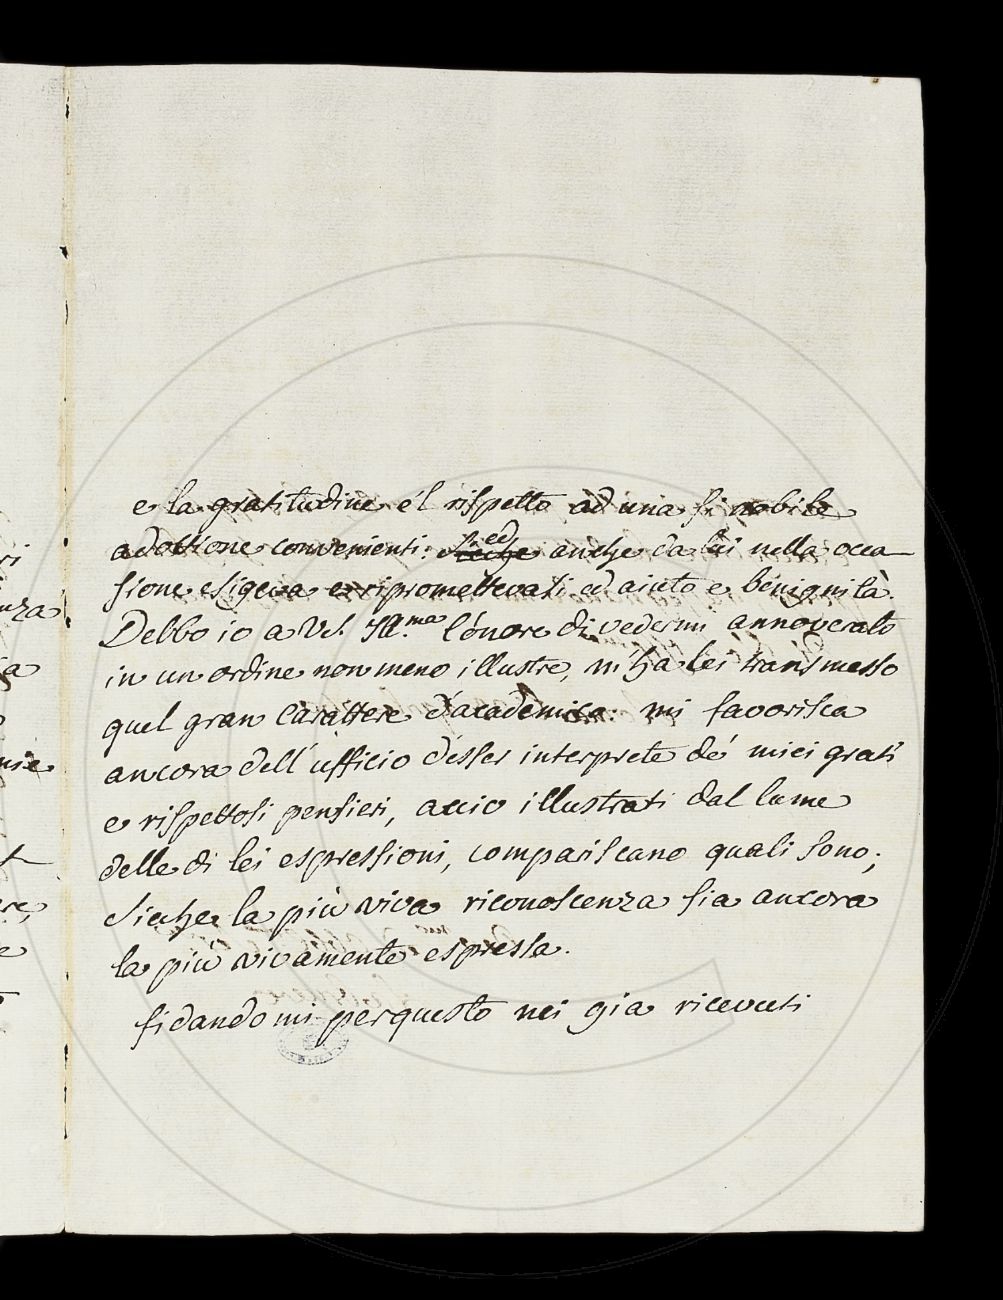 e la gratitudine e'l rispetto ad una sì nobile
adottione convenienti: ed anche da lei nella occa
sione esigeva e ripromettevasi ed aiuto e benignità.
Debbo io a V.S. Ill.ma l'onore di vedermi annoverato
in un ordine non meno illustre, m'ha lei transmesso
quel gran carattere d'academica: mi favorisca
ancora dell'ufficio d'esser interprete de' miei grati
e rispettosi pensieri, accio illustrati dal lume
delle di lei espressioni, compariscano quali sono;
sicche la più viva riconoscenza sia ancora
la più vivamente espressa.
fidandomi per questo nei gia ricevuti